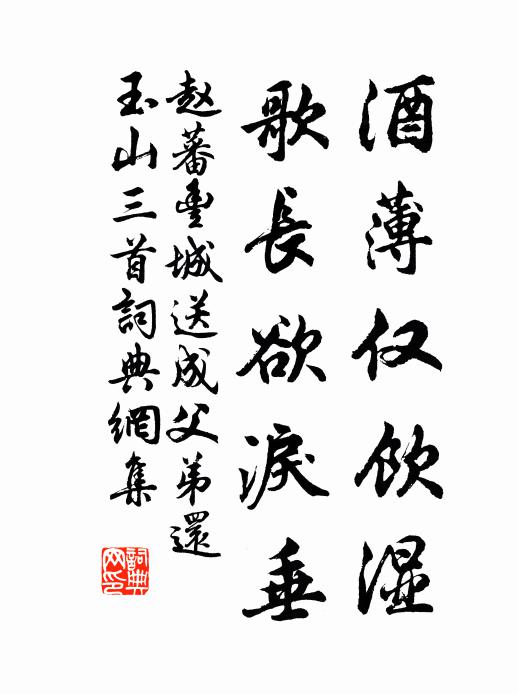 酒薄仅饮湿
歌長欲淚垂
赵蕃豐城送成父弟還
玉山三首詞典網集
詞典网印